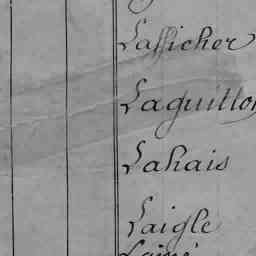 Lafficher
Laguillon
Lahais
Laigle
Lainé